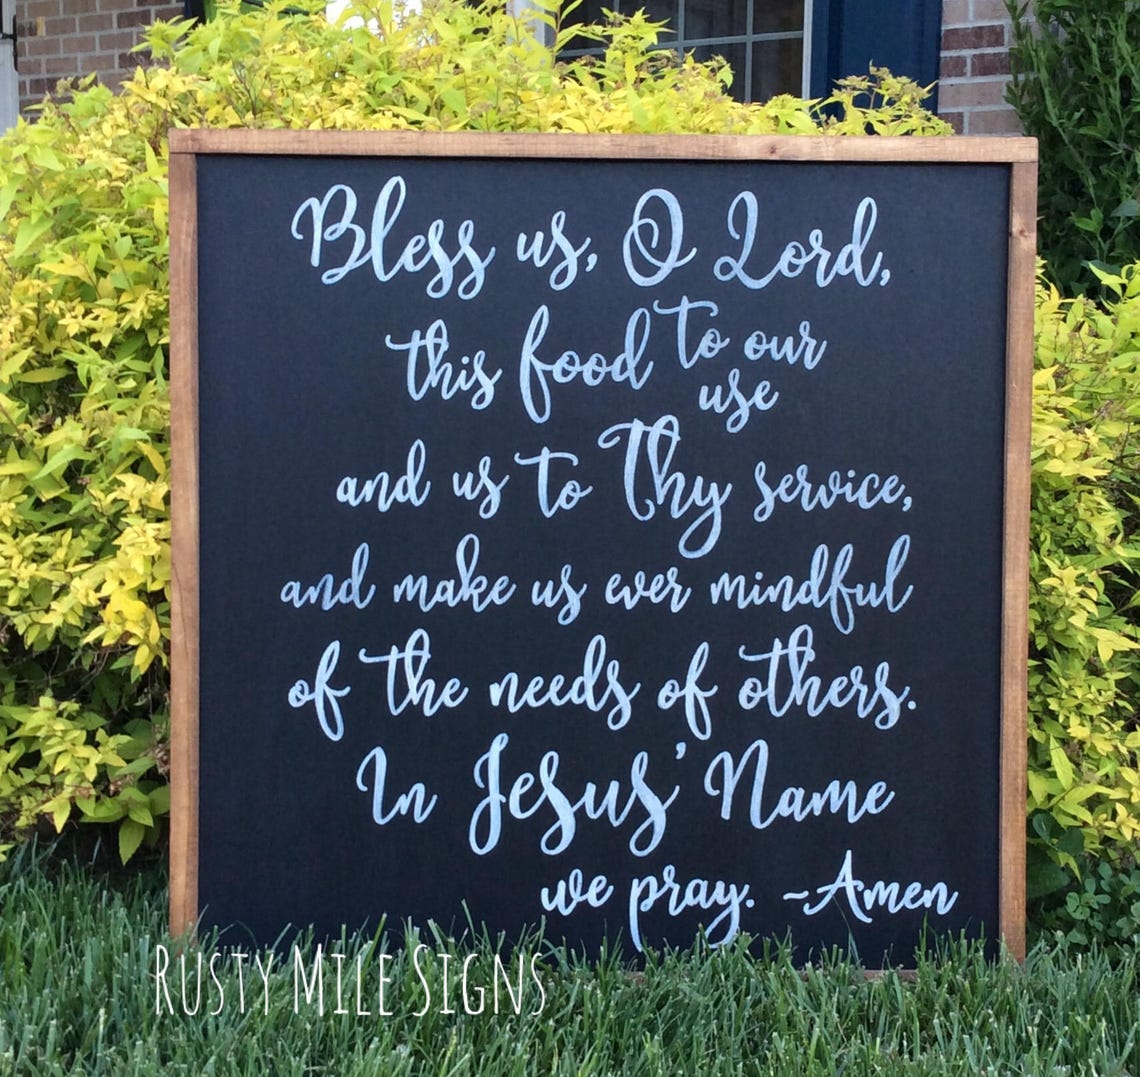 Bless us, O Lord,
this food to our
use
and us to Thy service,
and make us ever mindful
of the needs of others.
In Jesus' Name
we pray. ~Amen
Rusty Mile Signs